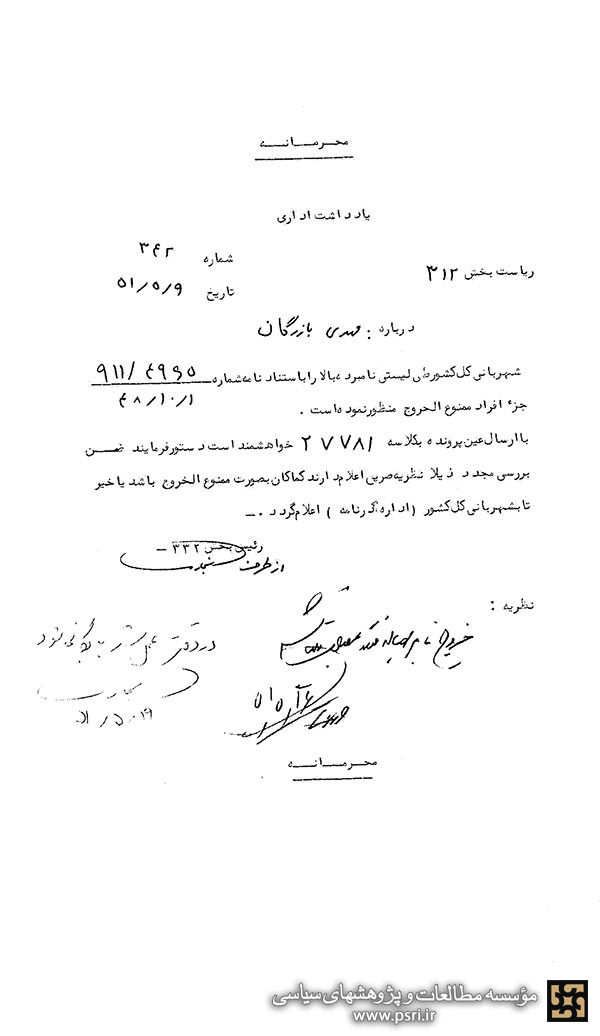 محرمانه
یادداشت اداری
ریاست بخش ۳۱۲
شماره ۳۴۲
تاریخ ۵۱/۵/۹
درباره : مهدی بازرگان
شهربانی کل کشور طی لیستی نامبرده بالا را باستناد نامه شماره ۴۹۶۵/۹۱۱
۴۸/۱۰/۱
جزء افراد ممنوع الخروج منظور نموده است .
با ارسال عین پرونده بکلاسه ۲۷۷۸۱ خواهشمند است دستور فرمایند ضمن
بررسی مجدد ذیلا نظریه صریح اعلام دارند کماکان بصورت ممنوع الخروج باشد یا خیر
تا بشهربانی کل کشور (اداره گذرنامه ) اعلام گردد .ـ
رئیس بخش ۳۳۲ ـ
از طرف
نظریه :
خروج نامبرده
محرمانه
مؤسسه مطالعات و پژوهشهای سیاسی
www.psri.ir